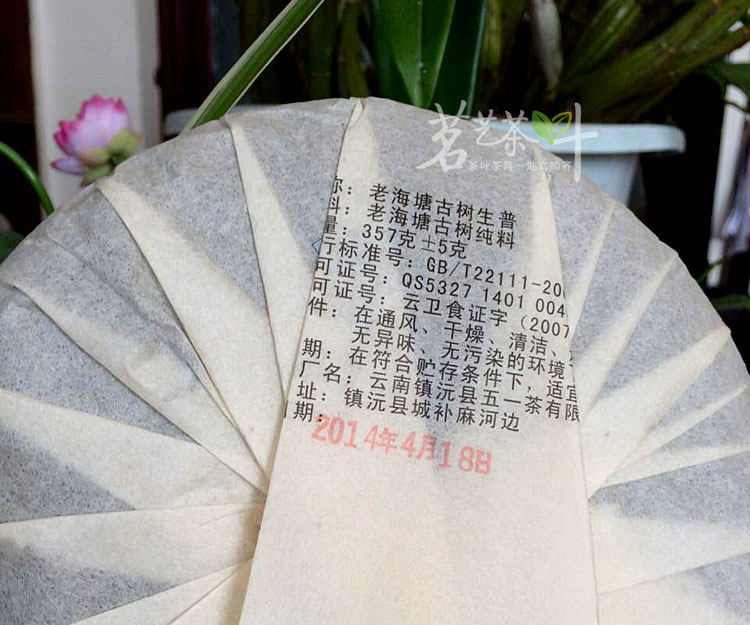 茗艺茶叶
茶叶茶具一站式购齐
称：老海塘古树生普
料：老海塘古树纯料
量：357克±5克
行标准号：GB/T22111-20
可证号：QS5327 1401 004
可证号：云卫食证字（2007
件：在通风、干燥、清洁、
无异味、无污染的环境
期：在符合贮存条件下，适宜
厂名：云南镇沅县五一茶有限
址：镇沅县城补麻河边
期：
2014年4月18日